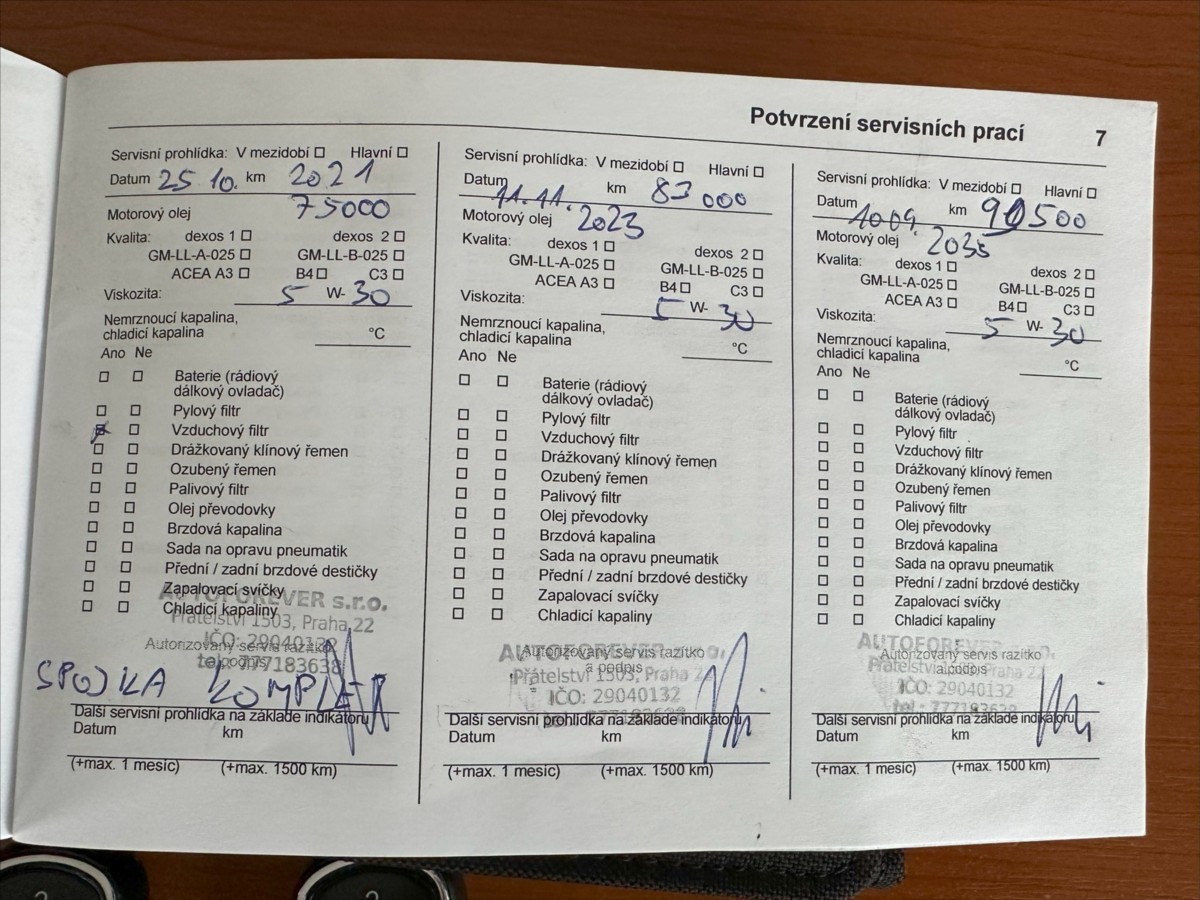 Potvrzení servisních prací 7
Servisní prohlídka: V mezidobí Hlavní
Datum 25. 10. km 2021
75000
Motorový olej
Kvalita: dexos 1 dexos 2
GM-LL-A-025 GM-LL-B-025
ACEA A3 B4 C3
Viskozita: 5 W- 30
Nemrznoucí kapalina,
chladicí kapalina °C
Ano Ne
Baterie (rádiový
dálkový ovladač)
Pylový filtr
Vzduchový filtr
Drážkovaný klínový řemen
Ozubený řemen
Palivový filtr
Olej převodovky
Brzdová kapalina
Sada na opravu pneumatik
Přední / zadní brzdové destičky
Zapalovací svíčky
AUTOFOREVER s.r.o.
Chladicí kapaliny
Přátelství 1503, Praha 22
IČO: 29040132
Autorizovaný servis razítko
a podpis
tel.: 777183638
SPOJKA KOMPLET
Další servisní prohlídka na základě indikátoru
Datum km
(+max. 1 mesic) (+max. 1500 km)
Servisní prohlídka: V mezidobí Hlavní
Datum 11.11. km 83 000
Motorový olej 2023
Kvalita: dexos 1 dexos 2
GM-LL-A-025 GM-LL-B-025
ACEA A3 B4 C3
Viskozita: 5 W- 30
Nemrznoucí kapalina,
chladicí kapalina °C
Ano Ne
Baterie (rádiový
dálkový ovladač)
Pylový filtr
Vzduchový filtr
Drážkovaný klínový řemen
Ozubený řemen
Palivový filtr
Olej převodovky
Brzdová kapalina
Sada na opravu pneumatik
Přední / zadní brzdové destičky
Zapalovací svíčky
Chladicí kapaliny
Autorizovaný servis razítko
AUTOFOREVER
a podpis
Přátelství 1503, Praha 22
IČO: 29040132
Další servisní prohlídka na základě indikátoru
Datum km
(+max. 1 mesic) (+max. 1500 km)
Servisní prohlídka: V mezidobí Hlavní
Datum 10 09. km 90500
Motorový olej
Kvalita: dexos 1 dexos 2
GM-LL-A-025 GM-LL-B-025
ACEA A3 B4 C3
Viskozita: 5 W- 30
Nemrznoucí kapalina,
chladicí kapalina °C
Ano Ne
Baterie (rádiový
dálkový ovladač)
Pylový filtr
Vzduchový filtr
Drážkovaný klínový řemen
Ozubený řemen
Palivový filtr
Olej převodovky
Brzdová kapalina
Sada na opravu pneumatik
Přední / zadní brzdové destičky
Zapalovací svíčky
Chladicí kapaliny
AUTOFOREVER
Autorizovaný servis razítko
a podpis
Přátelství Praha 22
IČO: 29040132
tel.: 777183638
Další servisní prohlídka na základě indikátoru
Datum km
(+max. 1 mesic) (+max. 1500 km)